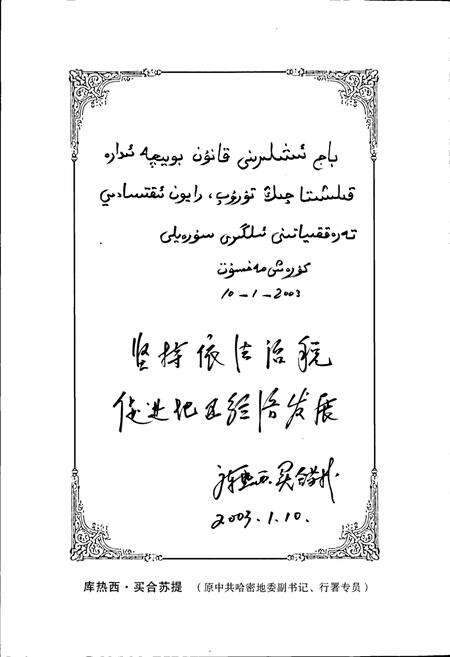 باج ئىشلىرىنى قانۇن بويىچە ئىدارە
قىلىشتا چىڭ تۇرۇپ، رايون ئىقتىسادىي
تەرەققىياتىنى ئىلگىرى سۈرەيلى
كۈرەش مەخسۇت
10-1-2003
坚持依法治税
促进地区经济发展
库热西·买合苏提
2003.1.10.
库热西·买合苏提 （原中共哈密地委副书记、行署专员）